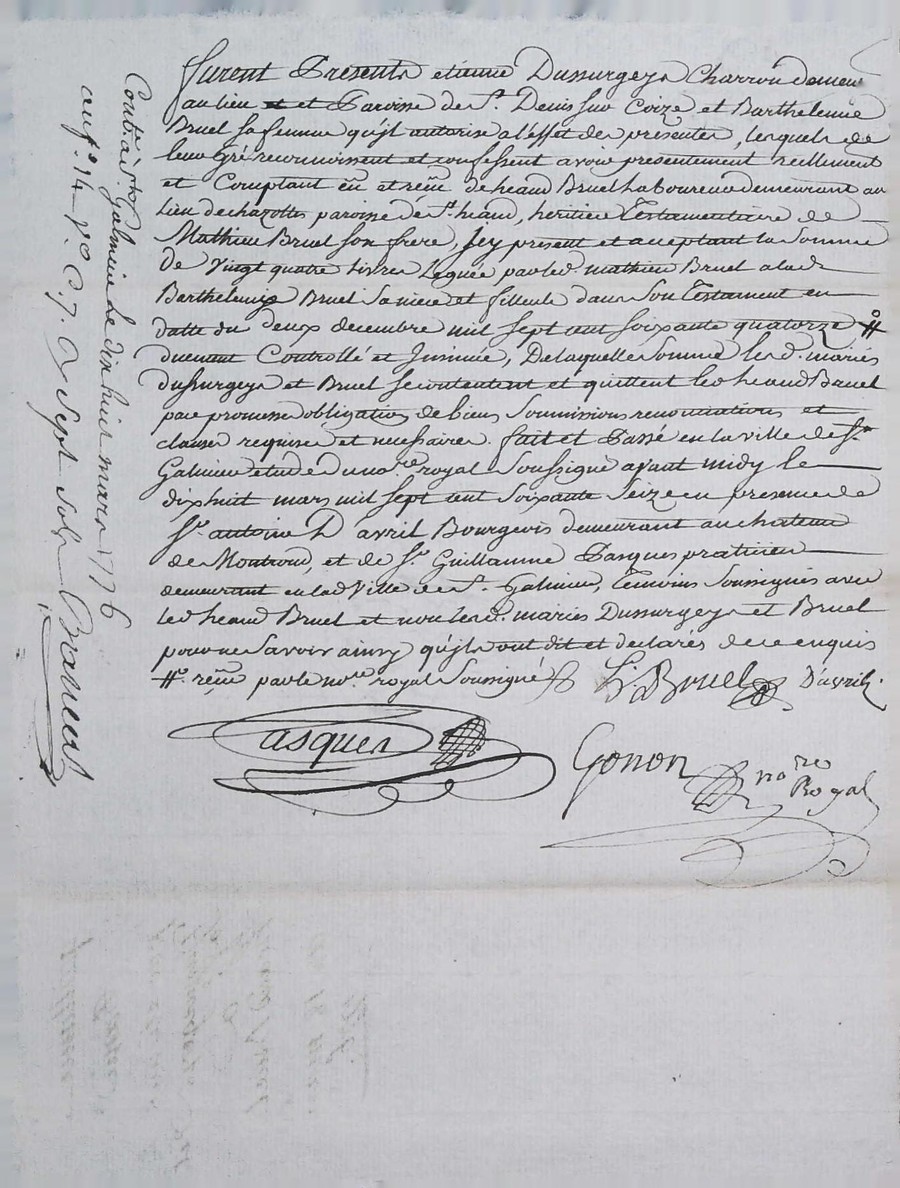 furent Presents etienne Dussurgeys Charron demeu
au lieu et Paroisse de St. Denis sur Coize et Barthelemie
Bruel sa femme qu'jl autorise a l'effet des presentes, lesquels de
leur gré reconnoissent et confessent avoir presentement réellement
et Comptant eu et receu de heaud Bruel Laboureur demeurant au
lieu de chazottes paroisse de St. heaud, heritier Testamentaire de
Mathieu Bruel son frere, Jcy present et acceptant la Somme
de Vingt quatre Livres Leguée par led. mathieu Bruel a lad.
Barthelemye Bruel Sa niece et filleule dans Son Testament en
datte du deux decembre mil sept cent soixante quatorze #
duement Controllé et Jnsinué, De laquelle Somme lesd. mariés
dussurgeys et Bruel se contentent et quittent led heaud Bruel
par promesses obligations de biens Soumissions renonciations et
clauses requises et necessaires. fait et Passé en la ville de St.
Galmier etude du nore. royal Soussigné avant midy le
dixhuit mars mil sept cent Soixante Seize en presence de
Sr. antoine D avril Bourgeois demeurant au chateau
de Montrond, et de Sr. Guillaume Pasques praticien
demeurant en lad Ville de St. Galmier, Temoins Soussignés avec
led heaud Bruel et non lesd. mariés Dussurgeys et Bruel
pour ne Savoir ainsy qu'jls ont dit et declarés de ce enquis
#. receu par le nore. royal Soussigné
Bruel D'avril.
Pasques
Gonon nore
Royal
Controllé a St. Galmier le dix huit mars 1776
art. 14 - Vo. C. 7. R Sept Sols